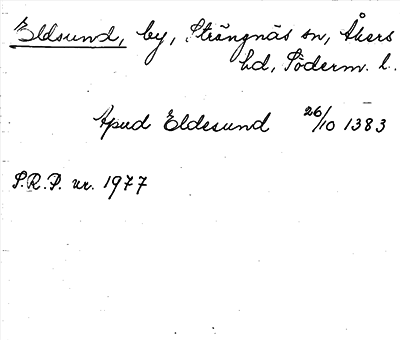 Eldsund, by, Strängnäs sn, Åkers
hd, Söderm. l.
Apud Eldesund 26/10 1383
S.R.P. nr. 1977